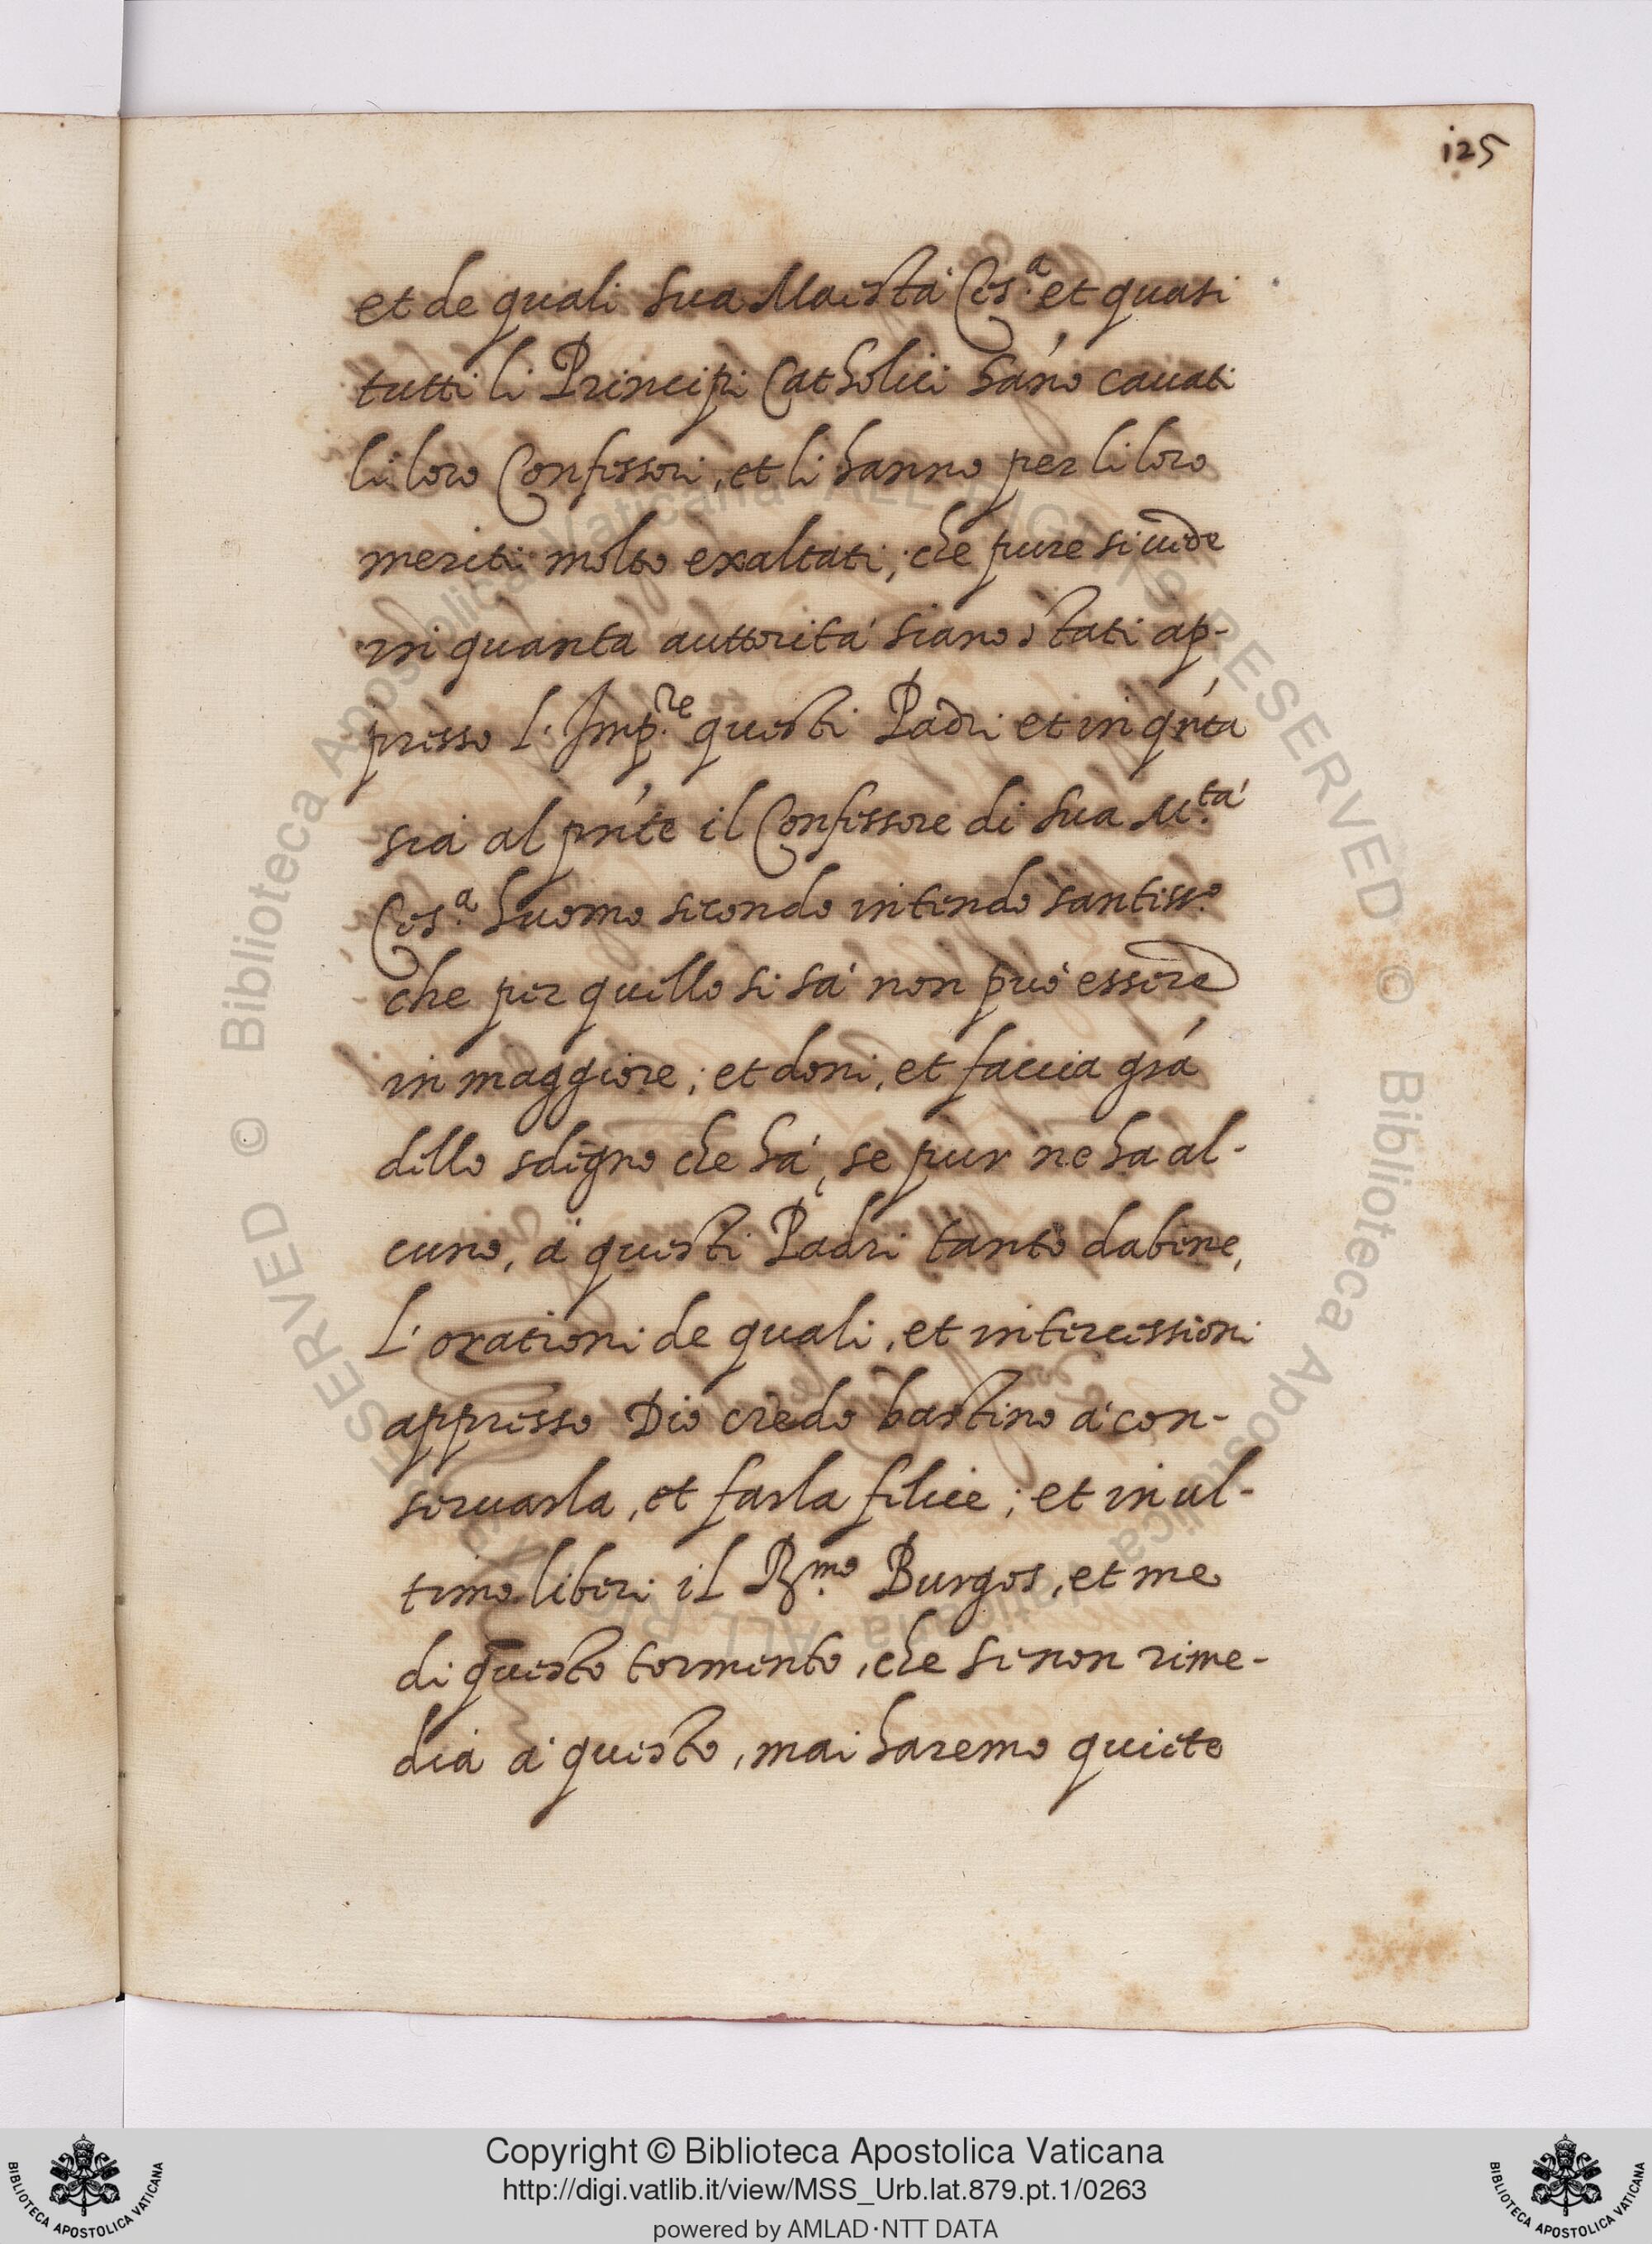 125
et de quali sua Maestà Ces.ª et quasi
tutti li Principi Catholici háno cauati
li loro Confessori, et li hanno per li loro
meriti molto exaltati, che pure si uede
in quanta auttorità siano stati ap-
presso l'Imp.re questi Padri et in qńta
sia al pńte il Confessore di Sua M.tà
Ces.ª huomo secondo intendo santiss.o
che per quello si sà non può essere
in maggiore; et doni, et faccia grá
dello sdegno che hà, se pur ne ha al-
cuno, à questi Padri tanto da bene,
l'orationi de quali, et intercessioni
appresso Dio credo bastino à con-
seruarla, et farla felice; et in ul-
timo liberi il R.mo Burgos, et me
di questo tormento, che se non rime-
dia à questo, mai haremo quiete
Copyright © Biblioteca Apostolica Vaticana
http://digi.vatlib.it/view/MSS_Urb.lat.879.pt.1/0263
powered by AMLAD·NTT DATA
BIBLIOTECA APOSTOLICA VATICANA
BIBLIOTECA APOSTOLICA VATICANA
© Biblioteca Apostolica Vaticana ALL RIGHTS RESERVED © Biblioteca Apostolica Vaticana ALL RIGHTS RESERVED